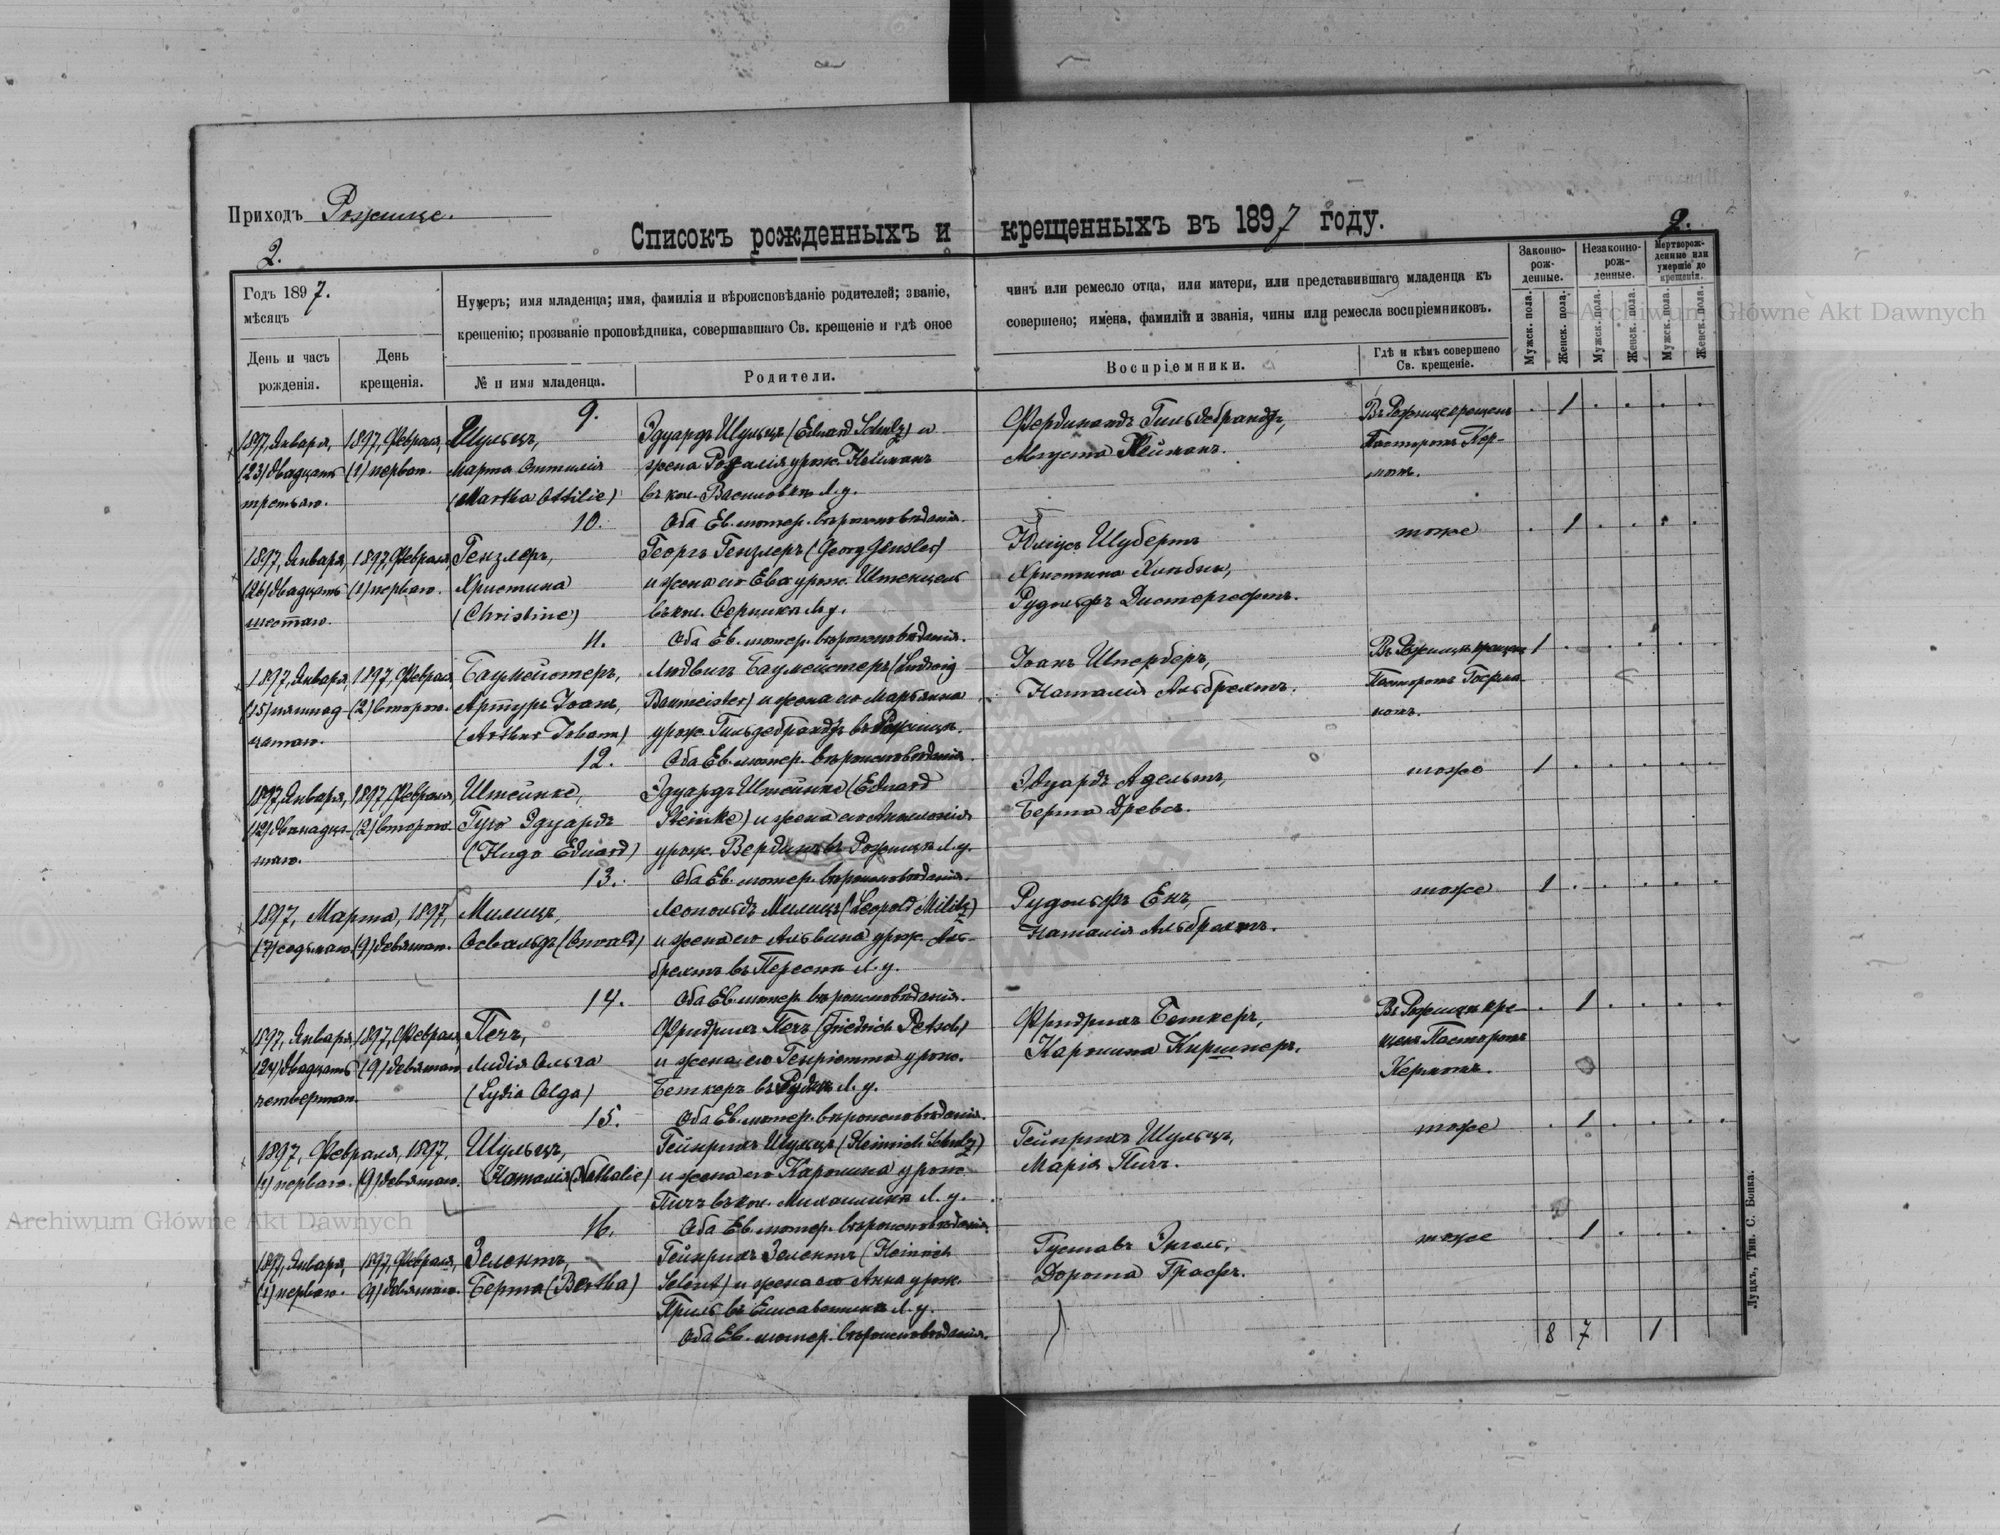 Приходъ Рожище.
2.
Списокъ рожденныхъ и крещенныхъ въ 1897 году.
2.
Годъ 1897.
мѣсяцъ
День и часъ рожденія.
День крещенія.
Нумеръ; имя младенца; имя, фамилія и вѣроисповѣданіе родителей; званіе, чинъ или ремесло отца, или матери, или представившаго младенца къ
крещенію; прозваніе проповѣдника, совершавшаго Св. крещеніе и гдѣ оное совершено; имена, фамиліи и званія, чины или ремесла воспріемниковъ.
№ и имя младенца.
Родители.
Воспріемники.
Гдѣ и кѣмъ совершено Св. крещеніе.
Законно-рож-денные.
Незаконно-рож-денные.
Мертворож-денные или умершіе до крещенія.
Мужск. пола.
Женск. пола.
Мужск. пола.
Женск. пола.
Мужск. пола.
Женск. пола.
9.
1897, Января, 1897, Февраля, Шульцъ, Эдуардъ Шульцъ (Eduard Schulz) и Фердинандъ Гильдебрандъ, Въ Рожище крещенъ 1
(23) двадцать (1) перваго. Марта Оттилія жена Розалія урож. Нейманъ Августа Нейманъ. Пасторомъ Кер-
третьяго. (Martha Ottilie) въ кол. Л. у. момъ.
10. Оба Ев. лютер. вѣроисповѣданія.
1897, Января, 1897, Февраля, Гензлеръ, Георгъ Гензлеръ (Georg Gensler) Юліусъ Шубертъ тоже 1
(26) двадцать (1) перваго. Христина и жена его Ева урож. Штенцель Христина
шестаго. (Christine) въ кол. Л. у. Рудольфъ
11. Оба Ев. лютер. вѣроисповѣданія.
1897, Января, 1897, Февраля, Баумейстеръ, Людвигъ Баумейстеръ (Ludwig Іоанъ Шперберъ, Въ Рожищѣ крещенъ 1
(15) пятнад- (2) второго. Артуръ Іоанъ, Baumeister) и жена его Марьянна Наталія Альбрехтъ. Пасторомъ
цатаго. (Arthur Johann) урож. Гильдебрандъ въ Рожищѣ.
12. Оба Ев. лютер. вѣроисповѣданія.
1897, Января, 1897, Февраля, Штейнке, Эдуардъ Штейнке (Eduard Эдуардъ Адельтъ, тоже 1
(12) двенадца- (2) второго. Гуго Эдуардъ Steinke) и жена его Берта Древсъ.
таго. (Hugo Eduard) урож. въ Рожищѣ Л. у.
13. Оба Ев. лютер. вѣроисповѣданія.
1897, Марта, 1897, Милицъ, Леопольдъ Милицъ (Leopold Militz) Рудольфъ Енъ, тоже 1
(7) седьмаго (9) девятаго. Освальдъ и жена его Альвина урож. Аль- Наталія Альбрехтъ.
брехтъ въ Л. у.
14. Оба Ев. лютер. вѣроисповѣданія.
1897, Января, 1897, Февраля, Печъ, Фридрихъ Печъ (Friedrich Petsch) Фридрихъ Беткеръ, Въ Рожищѣ кре- 1
(24) двадцать (9) девятаго Лидія Ольга и жена его Генріетта урож. Каролина Киршнеръ. щенъ Пасторомъ
четвертаго. (Lydia Olga) Беткеръ въ Л. у. Кермомъ.
15. Оба Ев. лютер. вѣроисповѣданія.
1897, Февраля, 1897. Шульцъ, Гейнрихъ Шульцъ (Heinrich Schulz) Гейнрихъ Шульцъ, тоже 1
(1) перваго. (9) девятаго. Наталія (Nathalie) и жена его Каролина урож. Марія Пичъ.
Пичъ въ кол. Л. у.
16. Оба Ев. лютер. вѣроисповѣданія.
1897, Января, 1897, Февраля, Зелентъ, Гейнрихъ Зелентъ (Heinrich Густавъ Энгель, тоже 1
(1) перваго. (9) девятаго. Берта (Bertha) Selent) и жена его Анна урож. Дорота Графъ.
въ Л. у.
Оба Ев. лютер. вѣроисповѣданія.
8 7 1
Луцкъ, Тип. С. Бонка.
Archiwum Główne Akt Dawnych
Archiwum Główne Akt Dawnych